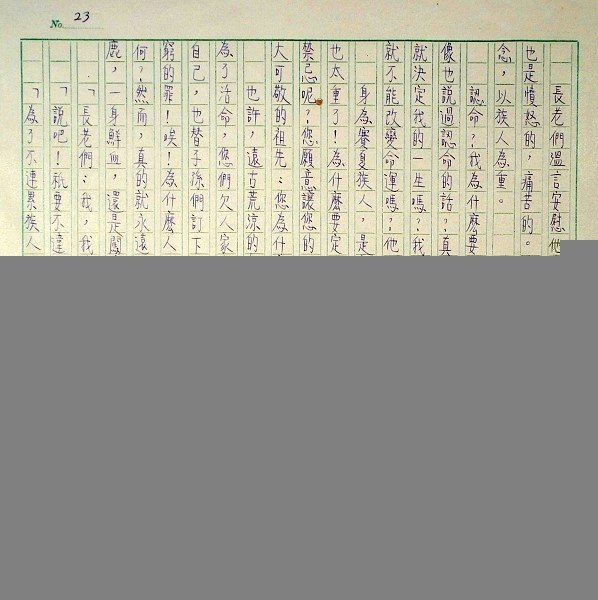 No. 23
長老們溫言安慰他
也是憤怒的，痛苦的。
念，以族人為重。
認命？我為什麼要
像也說過認命的話？真
就決定我的一生嗎？我
就不能改變命運嗎？他
身為賽夏族人，是
也太重了！為什麼要定
禁忌呢？您願意讓您的
大可敬的祖先：您為什
也許，遠古荒涼的
為了活命，您們欠人家
自己，也替子孫們訂下
窮的罪！唉！為什麼人
何？然而，真的就永遠
鹿，一身鮮血，還是闖
「長老們：我，我
「說吧！祇要不違
「為了不連累族人